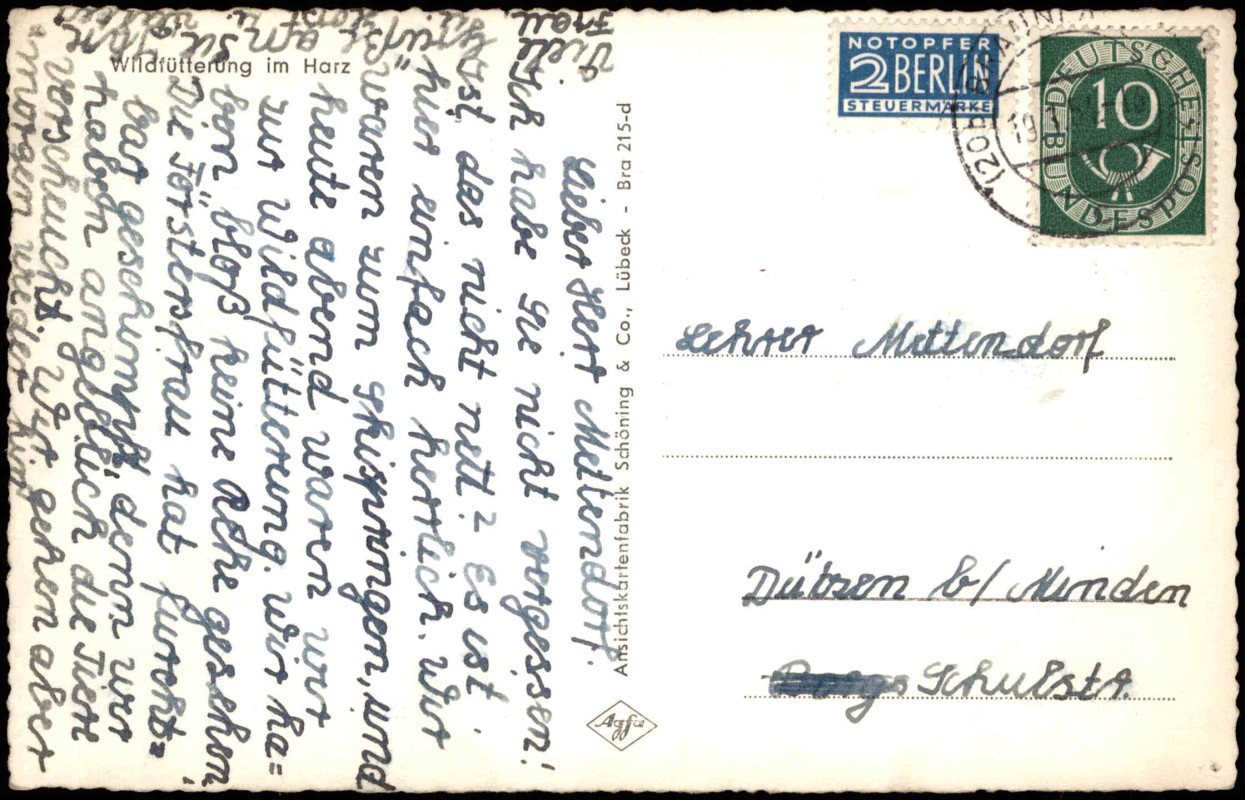 Wildfütterung im Harz
Lieber Herr Mettendorf.
Ich habe Sie nicht vergessen!
Ist das nicht nett? Es ist
hier einfach herrlich. Wir
waren zum Skispringen, und
heute abend waren wir
zur Wildfütterung. Wir ha=
ben bloß keine Rehe gesehen.
Die Förstersfrau hat furcht=
bar geschimpft, denn wir
haben angeblich die Tiere
verscheucht. Wir gehen aber
morgen wieder hin
Viele
Grüße
Frau
Ansichtskartenfabrik Schöning & Co., Lübeck - Bra 215-d
Agfa
NOTOPFER
2 BERLIN
STEUERMARKE
DEUTSCHE BUNDESPOST
10
Lehrer Mettendorf
Dützen b/ Minden
Schulstr.